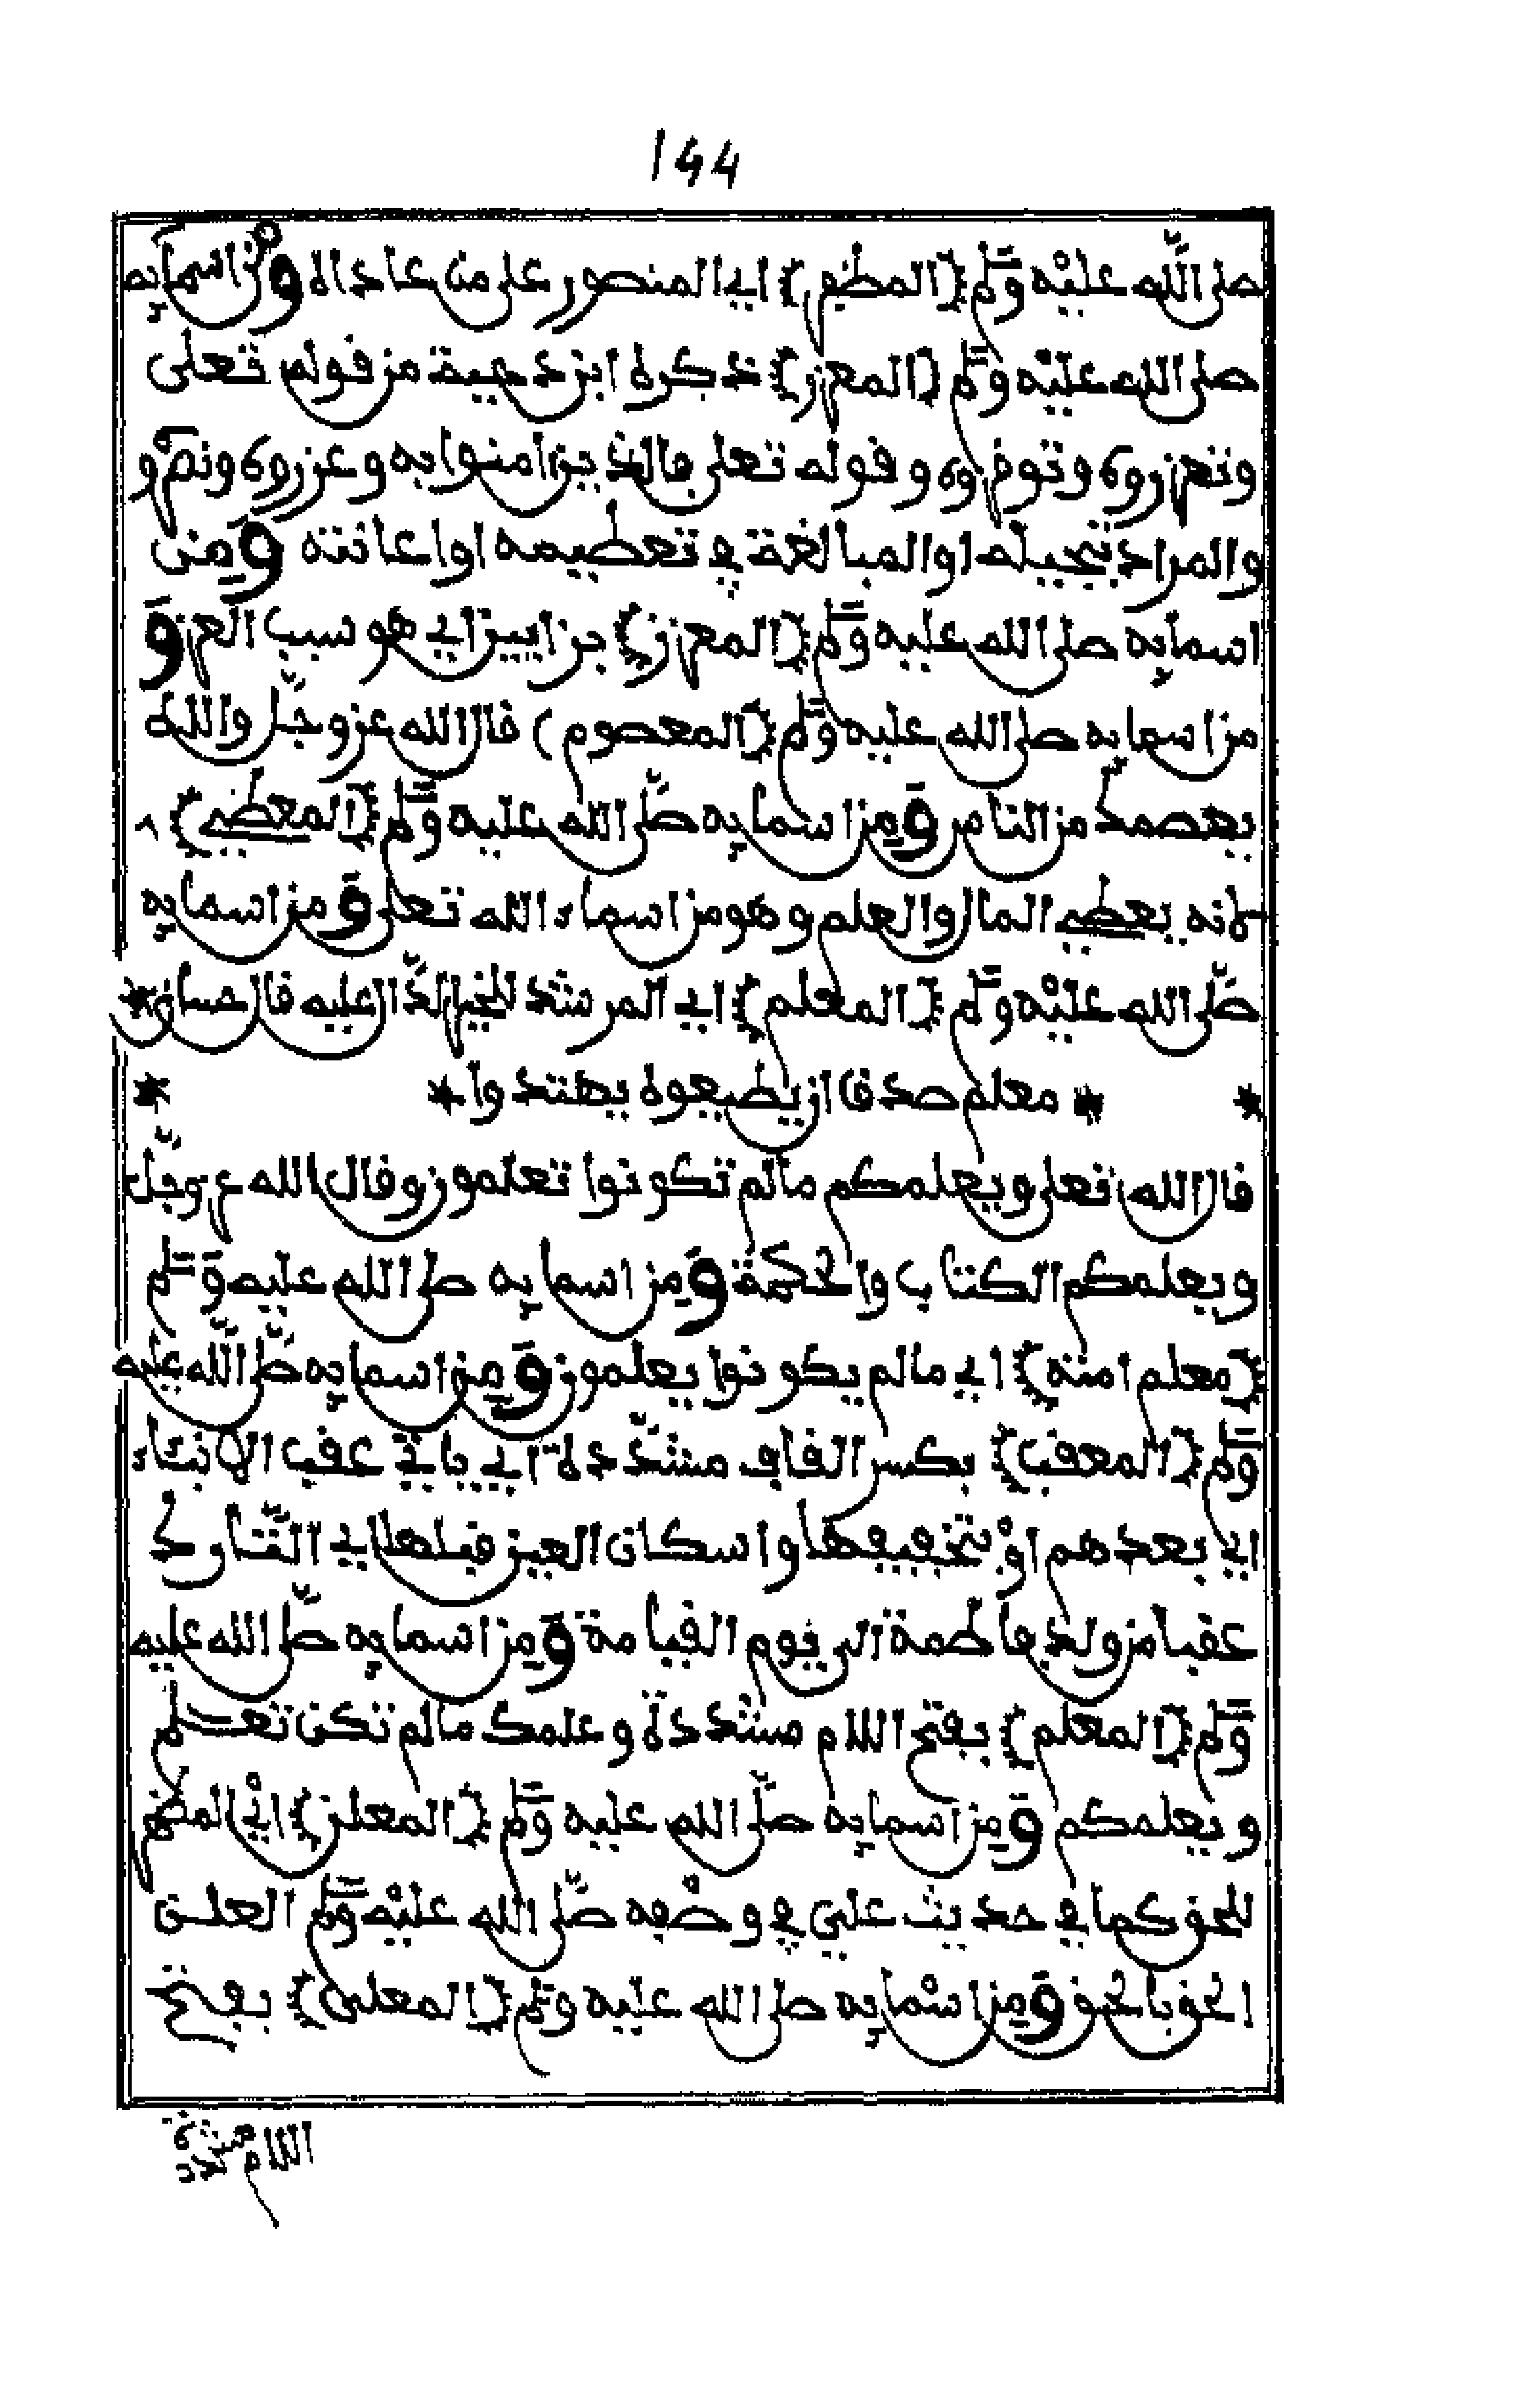 144
صلى الله عليه وسلم (المظفر) اي المنصور على من عاداه ومن اسمايه
صلى الله عليه وسلم (المعزر) ذكره ابن دحية من قوله تعلى
وتعزروه وتوفروه وقوله تعلى فالذين امنوا به وعزروه ونصروه
والمراد تبجيله والمبالغة في تعظيمه او اعانته ومن
اسمايه صلى الله عليه وسلم (المعزز) بزايين اي هو سبب العز و
من اسمايه صلى الله عليه وسلم (المعصوم) قال الله عز وجل والله
يعصمك من الناس ومن اسمايه صلى الله عليه وسلم (المعطي)
لانه يعطي المال والعلم وهو من اسماء الله تعلى ومن اسمايه
صلى الله عليه وسلم (المعلم) اي المرشد للخير الدال عليه قال حسان *
* * معلم صدق ان يطيعوه يهتدوا * *
قال الله تعلى ويعلمكم ما لم تكونوا تعلمون وقال الله عز وجل
ويعلمكم الكتاب والحكمة ومن اسمايه صلى الله عليه وسلم
(معلم امته) اي ما لم يكونوا يعلمون ومن اسمايه صلى الله عليه
وسلم (المعقب) بكسر القاف مشددة اي ياتي عقب الانبياء
اي بعدهم او بتخفيفها واسكان العين قبلها اي التارك
عقبا من ولد فاطمة الى يوم القيامة ومن اسمايه صلى الله عليه
وسلم (المعلم) بفتح اللام مشددة وعلمك ما لم تكن تعلم
ويعلمكم ومن اسمايه صلى الله عليه وسلم (المعلن) اي المظهر
للحق كما في حديث علي في وصفه صلى الله عليه وسلم العلن
الحق بالحق ومن اسمايه صلى الله عليه وسلم (المعلى) بفتح
اللام مشددة